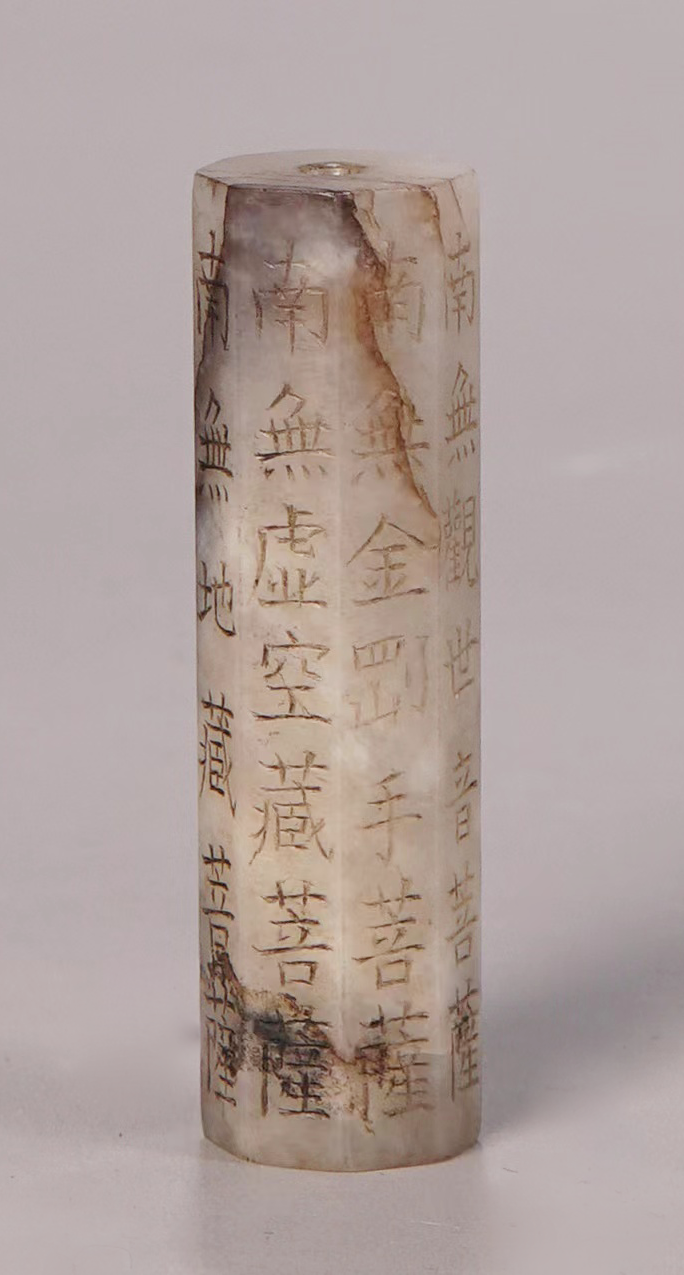 南無觀世音菩薩
南無金剛手菩薩
南無虛空藏菩薩
南無地藏菩薩